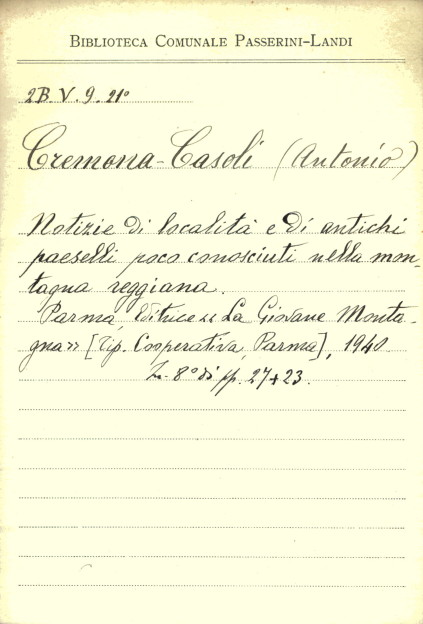 BIBLIOTECA COMUNALE PASSERINI-LANDI
2B. V. 9. 21°
Cremona-Casoli (Antonio)
Notizie di località e di antichi
paeselli poco conosciuti nella mon-
tagna reggiana.
Parma, Editrice « La Giovane Monta-
gna » [Tip. Cooperativa, Parma], 1940
In 8° di pp. 27+23.